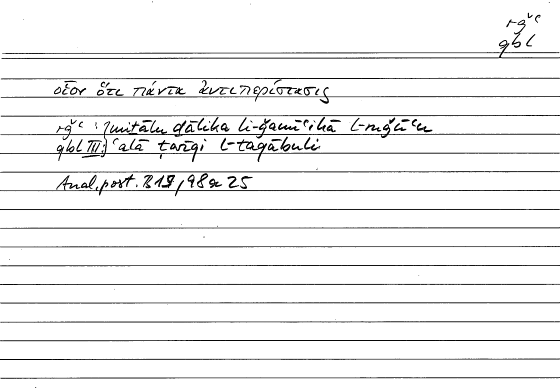 rǧʿ
qbl
οἷον ὅτι πάντα ἀντιπερίστασις
rǧʿ : miṯālu ḏālika li-ǧamīʿihā l-ruǧūʿu
qbl III: ʿalā ṭarīqi l-taqābuli
Anal. post. B 15, 98a25